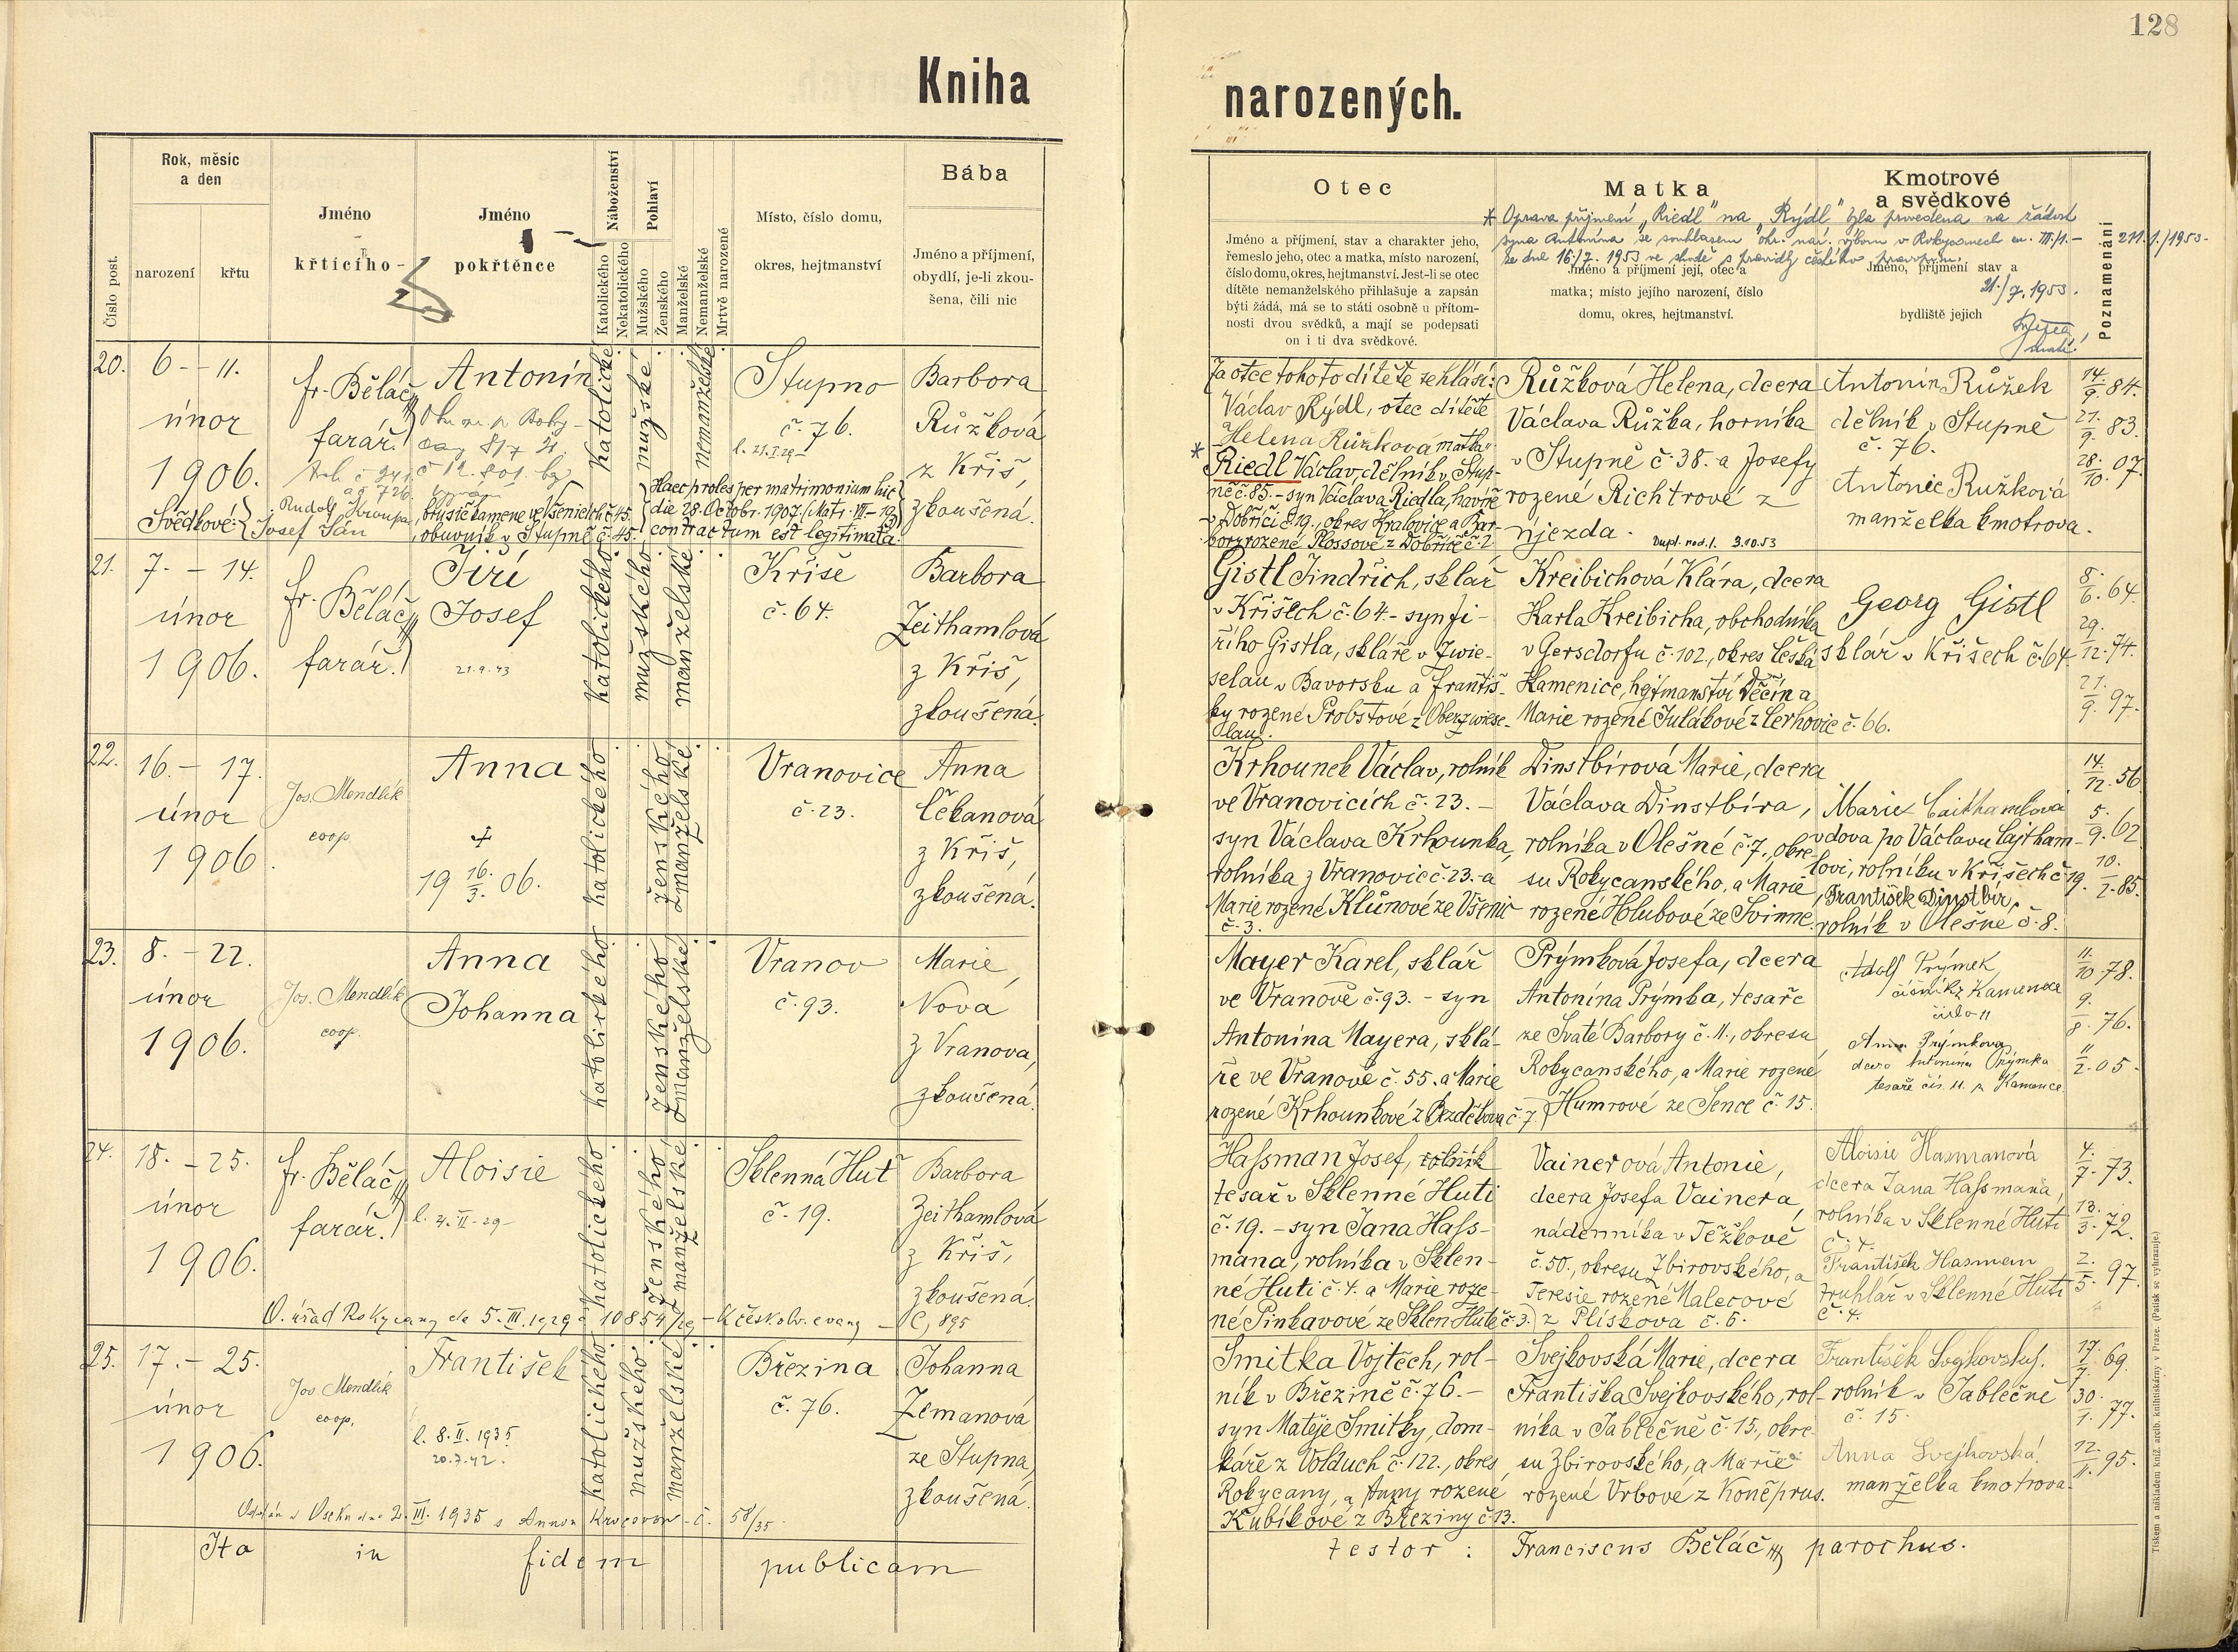 128
Kniha
narozených.
Číslo post.
Rok, měsíc
a den
narození
křtu
Jméno
křticího
Jméno
pokřtěnce
Náboženství
Katolického
Nekatolického
Pohlaví
Mužského
Ženského
Manželské
Nemanželské
Mrtvě narozené
Místo, číslo domu,
okres, hejtmanství
Bába
Jméno a příjmení,
obydlí, je-li zkou-
šena, čili nic
Otec
Jméno a příjmení, stav a charakter jeho,
řemeslo jeho, otec a matka, místo narození,
číslo domu, okres, hejtmanství. Jest-li se otec
dítěte nemanželského přihlašuje a zapsán
býti žádá, má se to státi osobně u přítom-
nosti dvou svědků, a mají se podepsati
on i ti dva svědkové.
Matka
Jméno a příjmení její, otec a
matka; místo jejího narození, číslo
domu, okres, hejtmanství.
Kmotrové
a svědkové
Jméno, příjmení stav a
bydliště jejich
Poznamenání
* Oprava příjmení „Riedl" na „Rýdl" byla provedena na žádost
syna Antonína se souhlasem okr. nár. výboru v Rokycanech
ze dne 16./7. 1953 ve shodě s pravidly českého pravopisu.
21./7.1953.
20.
6 - 11.
únor
1906.
fr. Běláč
farář.
Antonín
katolické
mužské
nemanželské
Stupno
č. 76.
Barbora
Růžková
z Kříš,
zkoušená.
Svědkové:
Rudolf Kroupa, brusič kamene ve Všenicích č. 45.
Josef Sán, obuvník v Stupně č. 45.
Haec proles per matrimonium hic
die 28. Octobr. 1907. (Matr. III-19)
contractum est legitimata.
Za otce tohoto dítěte se hlásí:
Václav Rýdl, otec dítěte
Helena Růžková matka
* Riedl Václav, dělník v Stup-
ně č. 85. - syn Václava Riedla, havíře
v Dobříči č. 19., okres Kralovice a Bar-
bory rozené Plossové z Dobříče č. 2
Růžková Helena, dcera
Václava Růžka, horníka
v Stupně č. 38. a Josefy
rozené Richtrové z
Újezda.
Dupl. rod. l. 3.10.53
Antonín Růžek
dělník v Stupně
č. 76.
Antonie Růžková
manželka kmotrova.
14/9. 84.
21./9. 83.
28./10. 07.
21.
7. - 14.
únor
1906.
fr. Běláč
farář.
Jiří
Josef
21.9.43
katolického
mužského
manželské
Kříše
č. 64.
Barbora
Zeithamlová
z Kříš,
zkoušená.
Gistl Jindřich, sklář
v Křišech č. 64. - syn Ji-
řího Gistla, skláře v Zwie-
selau v Bavorsku a Františ-
ky rozené Probstové z Oberzwiese-
lau.
Kreibichová Klára, dcera
Karla Kreibicha, obchodníka
v Gersdorfu č. 102., okres Česká
Kamenice, hejtmanství Děčín a
Marie rozené Julákové z Cerhovic č. 66.
Georg Gistl
sklář v Křišech č. 64
8./6. 64.
29./12. 74.
21./9. 97.
22.
16. - 17.
únor
1906.
Jos. Mendlík
coop.
Anna
†
19 16./3. 06.
katolického
ženského
manželské
Vranovice
č. 23.
Anna
Čekanová
z Kříš,
zkoušená.
Krhounek Václav, rolník
ve Vranovicích č. 23. -
syn Václava Krhounka,
rolníka z Vranovic č. 23. a
Marie rozené Klůnové ze Všenic
č. 3.
Dinstbírová Marie, dcera
Václava Dinstbíra,
rolníka v Olešné č. 7., okre-
su Rokycanského, a Marie
rozené Holubové ze Svinné.
Marie Caithamlová
vdova po Václavu Cajtham-
lovi, rolníku v Křišech č. 19.
František Dinstbír,
rolník v Olešné č. 8.
14./12. 56
5./9. 62
10./2. 85.
23.
8. - 22.
únor
1906.
Jos. Mendlík
coop.
Anna
Johanna
katolického
ženského
manželské
Vranov
č. 93.
Marie
Nová
z Vranova,
zkoušená.
Mayer Karel, sklář
ve Vranově č. 93. - syn
Antonína Mayera, sklá-
ře ve Vranově č. 55. a Marie
rozené Krhounkové z Bezděkova č. 7.
Prýmková Josefa, dcera
Antonína Prýmka, tesaře
ze Svaté Barbory č. 11., okresu
Rokycanského, a Marie rozené
Humrové ze Sence č. 15.
Adolf Prýmek,
číšník z Kamence
číslo 11
Anna Prýmkova
dcera Antonína Prýmka
tesaře čís. 11. z Kamence
11./10. 78.
9./8. 76.
11/2. 05.
24.
18. - 25.
únor
1906.
fr. Běláč
farář.
Aloisie
l. 4. II - 29 -
katolického
ženského
manželské
Sklenná Huť
č. 19.
Barbora
Zeithamlová
z Kříš,
zkoušená.
O. úřad Rokycany de 5. III. 1929 č 10854/29 - K českobr. evang - Č, 895
Hassman Josef, rolník
tesař v Sklenné Huti
č. 19. - syn Jana Hass-
mana, rolníka v Sklen-
né Huti č. 4. a Marie roze-
né Pinkavové ze Sklen. Hutě č. 3.
Vainerová Antonie,
dcera Josefa Vainera,
nádenníka v Těžkově
č. 50., okresu Zbirovského, a
Teresie rozené Malecové
z Plískova č. 6.
Aloisie Hasmanová
dcera Jana Hassmana,
rolníka v Sklenné Huti
č. 4.
František Hasman
truhlář v Sklenné Huti
č. 4.
4./7. 73.
13./3. 72.
2./5. 97.
25.
17. - 25.
únor
1906.
Jos. Mendlík
coop.
František
l. 8. II. 1935
20.7.42.
katolického
mužského
manželské
Březina
č. 76.
Johanna
Zemanová
ze Stupna,
zkoušená.
Oddán v Oseku dne 2. III. 1935 s Annou - č. 58/35.
Smitka Vojtěch, rol-
ník v Březině č. 76. -
syn Matěje Smitky, dom-
káře z Volduch č. 122., okres
Rokycany, a Anny rozené
Kubíkové z Březiny č. 13.
Svejkovská Marie, dcera
Františka Svejkovského, rol-
níka v Jablečně č. 15., okre-
su Zbirovského, a Marie
rozené Vrbové z Koněprus.
František Svejkovský.
rolník v Jablečně
č. 15.
Anna Svejkovská
manželka kmotrova.
17./7. 69.
30./1. 77.
12./11. 95.
Ita in fidem publicam
testor: Franciscus Běláč parochus.
Tiskem a nákladem kníž. arcib. knihtiskárny v Praze. (Patisk se vyhrazuje.)